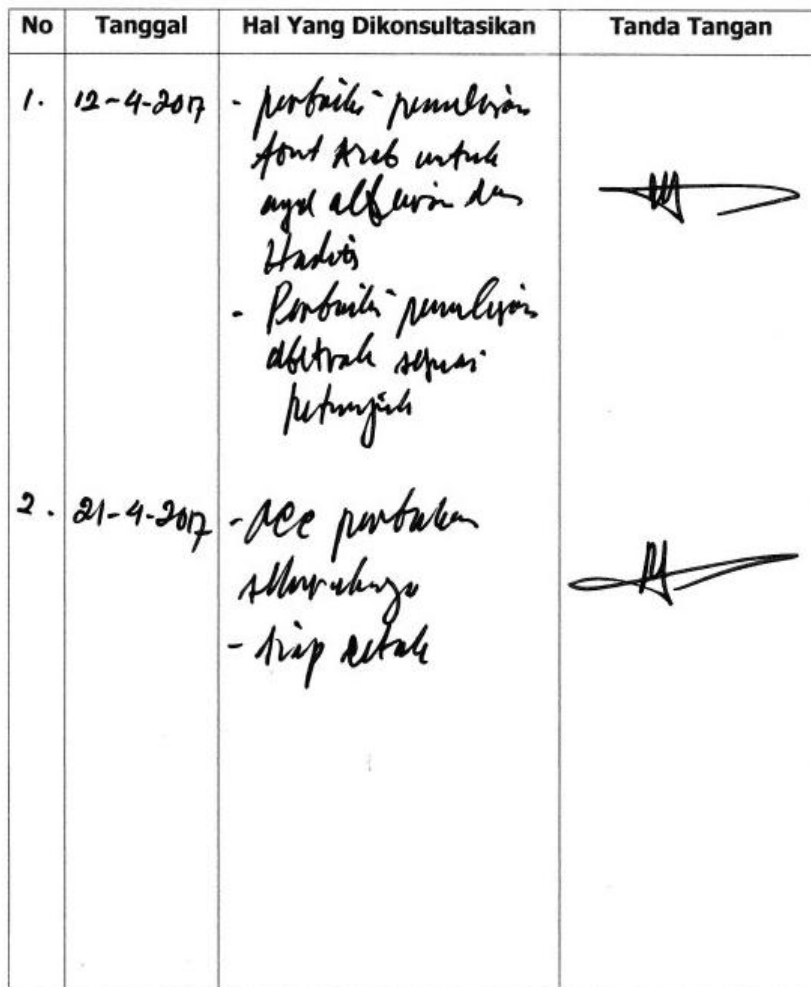 No Tanggal Hal Yang Dikonsultasikan Tanda Tangan
1. 12-4-2017 - perbaiki penulisan
font Arab untuk
ayat alQuran dan
Hadits
- Perbaiki penulisan
abstrak sesuai
petunjuk
2. 21-4-2017 - Acc perbaikan
seluruhnya
- siap cetak